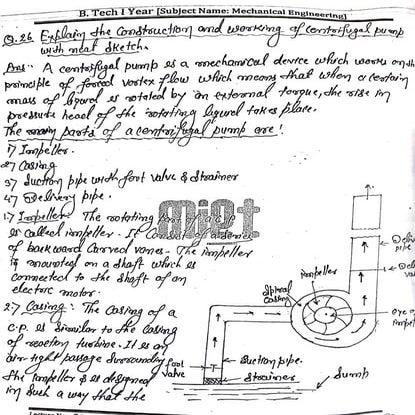 B. Tech I Year [Subject Name: Mechanical Engineering]
Q.26. Explain the construction and working of centrifugal pump
with neat sketch.
Ans:- A centrifugal pump is a mechanical device which works on the
principle of forced vortex flow which means that when a certain
mass of liquid is rotated by an external torque, the rise in
pressure head of the rotating liquid takes place.
The main parts of a centrifugal pump are!
1) Impeller.
2) Casing
3) Suction pipe with foot valve & strainer
4) Delivery pipe.
miet
1:) Impeller: The rotating
is called impeller. It
of backward curved vanes. The impeller
is mounted on a shaft which is
connected to the shaft of an
electric motor.
2:) Casing: The casing of a
c.p. is similar to the casing
of reaction turbine. It is an
air tight passage surrounding
the impeller & is designed
in such a way that the
pipe
impeller
spiral
casing
eye of
foot
valve
suction pipe.
strainer
sump